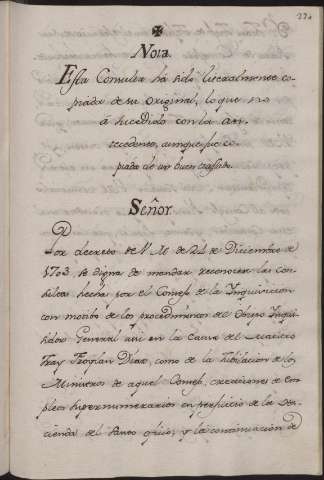 Nota
Esta Consulta há sido literalmente co-
piada de su original, lo que no
á sucedido con la an-
tecedente, aunque fue co-
piada de un buen traslado.
Señor.
Por decreto de V. M. de 24 de Diciembre de
1703 se digna de mandar reconocer las con-
sultas hechas por el Consejo de la Inquisicion
con motibo de los procedimientos del Obispo Inqui-
sidor General asi en la Causa del Maestro
Fray Froylan Diaz, como de la Jubilacion de los
Ministros de aquel Consejo, creaciones de em-
pleos supernumerarios en perjuicio de la Ha-
cienda del Santo oficio, y la continuacion de